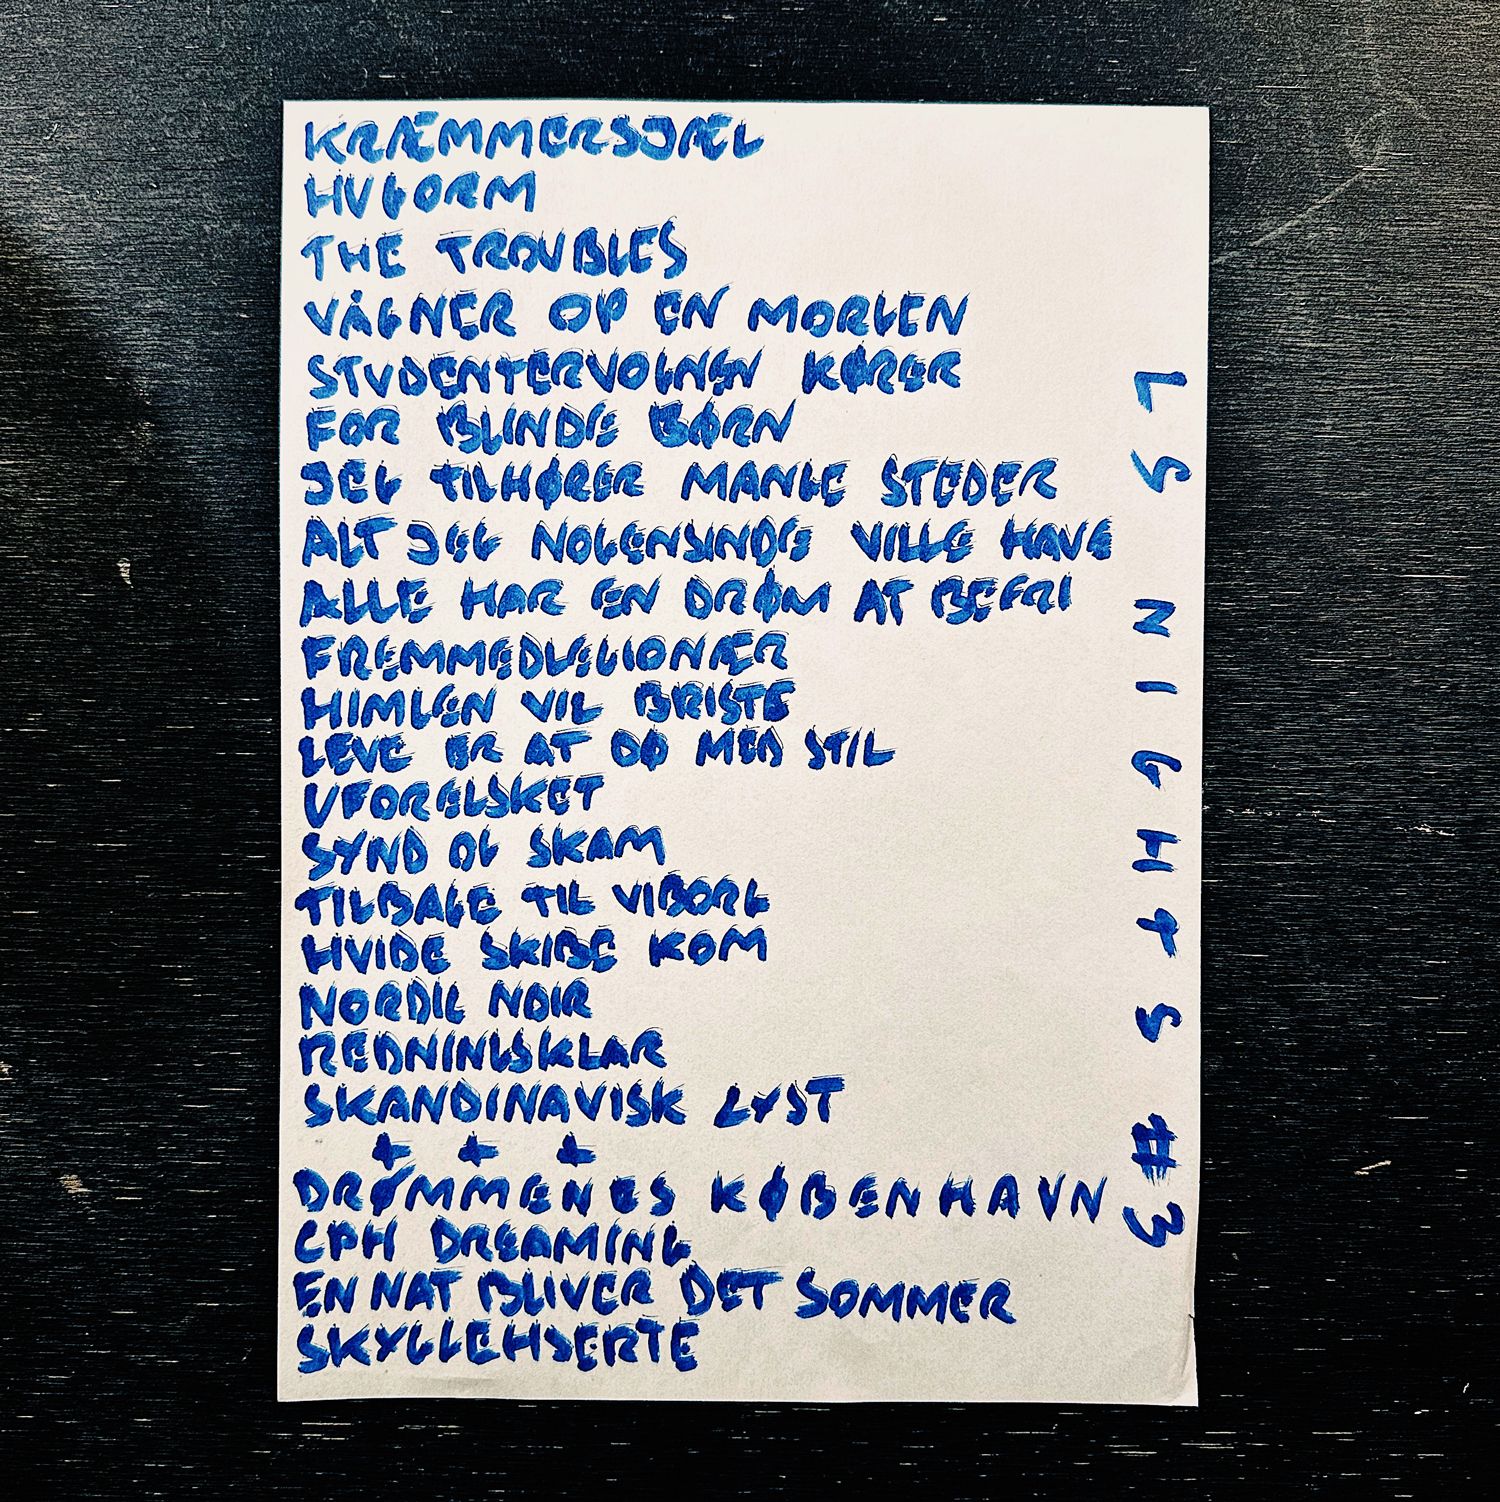 KRÆMMERSJÆL
HUGORM
THE TROUBLES
VÅGNER OP EN MORGEN
STUDENTERVOGNEN KØRER
FOR BLINDE BØRN
JEG TILHØRER MANGE STEDER
ALT JEG NOGENSINDE VILLE HAVE
ALLE HAR EN DRØM AT BEFRI
FREMMEDLEGIONÆR
HIMLEN VIL BRISTE
LEVE ER AT DØ MED STIL
UFORELSKET
SYND OG SKAM
TILBAGE TIL VIBORG
HVIDE SKIBE KOM
NORDIC NOIR
REDNINGSKLAR
SKANDINAVISK LYST
+ + +
DRØMMENES KØBENHAVN
CPH DREAMING
EN NAT BLIVER DET SOMMER
SKYGGEHJERTE
LS NIGHTS #3